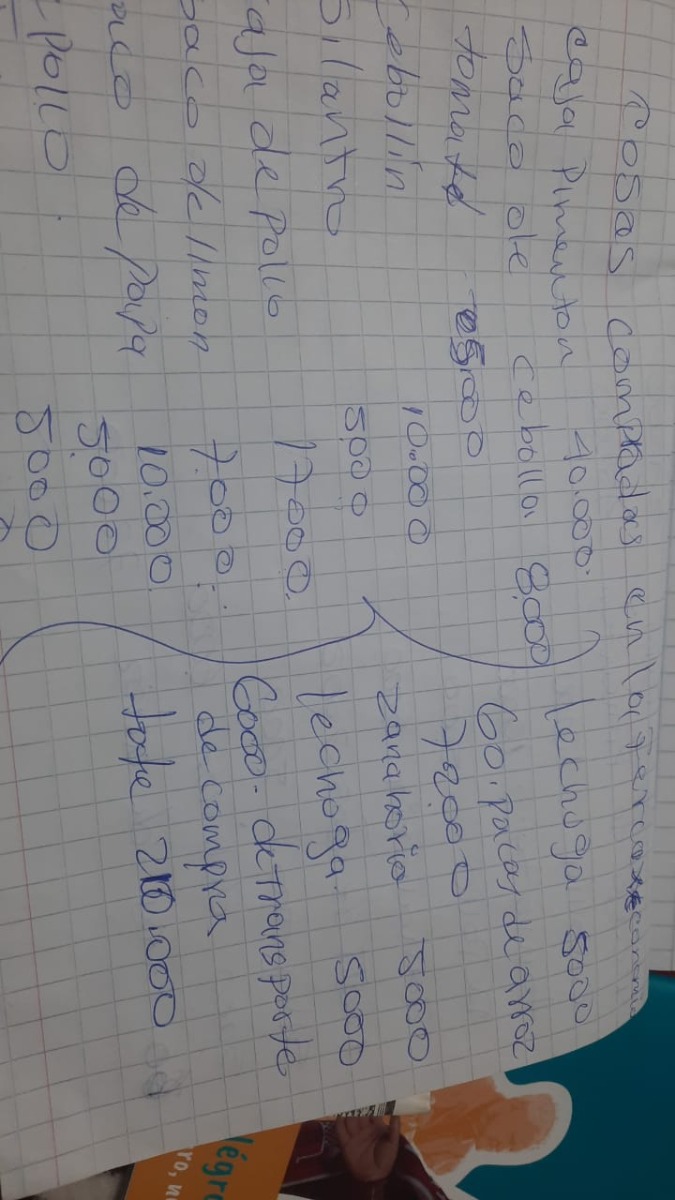 Cosas compradas en la
caja Pimenton 40.000.
Saco de cebolla 8000
tomate 5000
Cebollin 10.000
Silantro 5000
caja de pollo 17000.
saco de limon 7.000
saco de papa 10.000
5.000
pollo. 5000
lechuga 5000
60. pacas de arroz
72000
zanahoria 5000
lechoga. 5000
6000. de transporte
de compra
tota 210.000